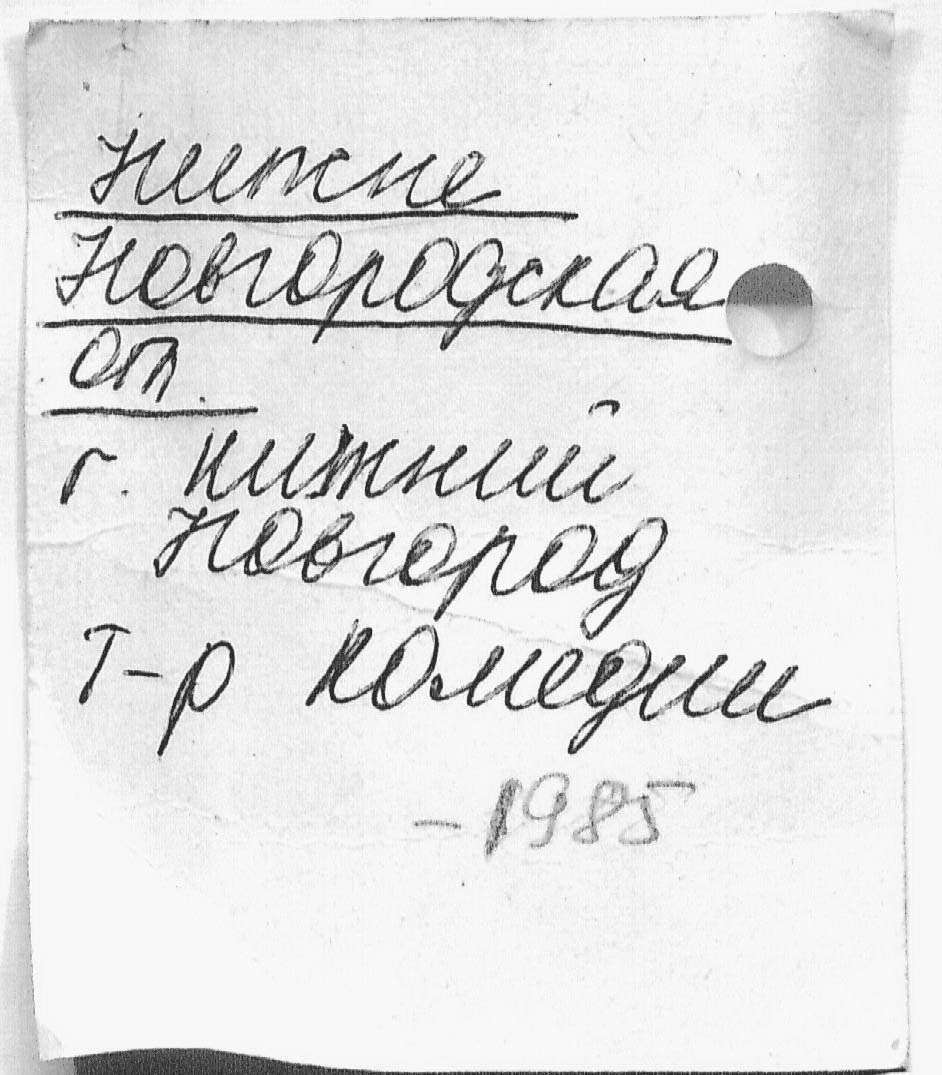 Нижне
Новгородская
оп.
г. Нижний
Новгород
Т-р комедии
- 1985